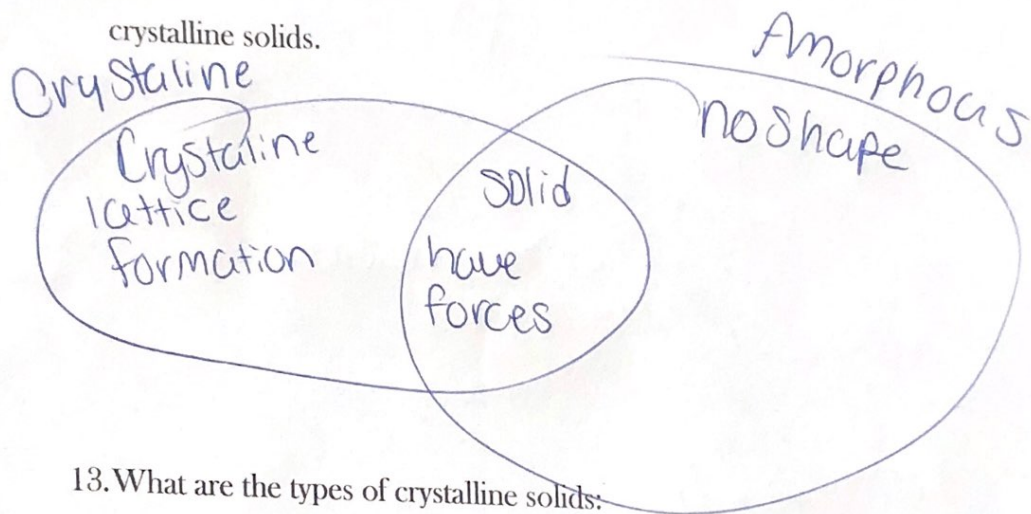 crystalline solids.
Crystaline
Amorphous
Crystaline
lattice
formation
solid
have
forces
no shape
13. What are the types of crystalline solids: